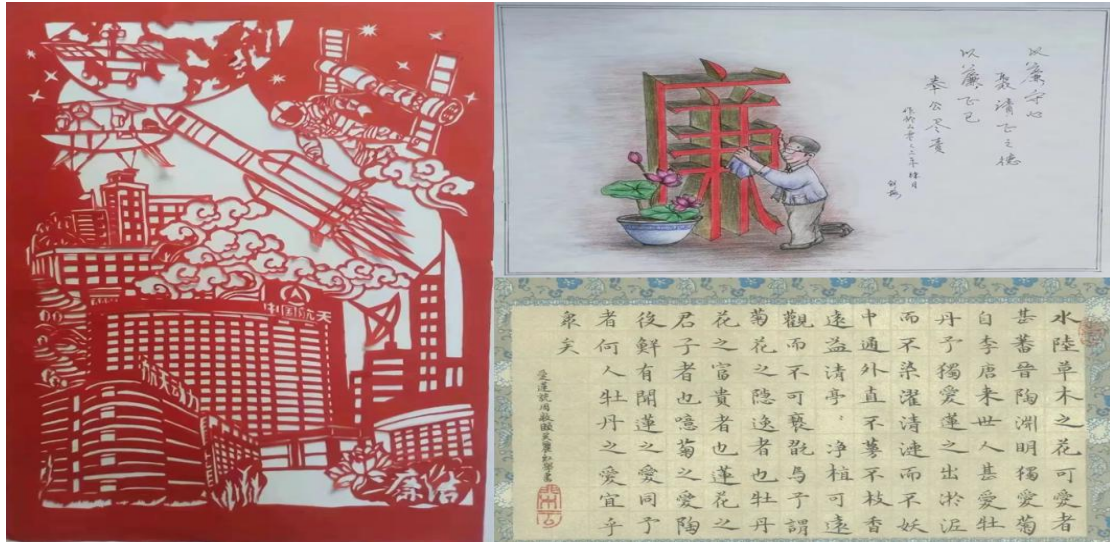 中国航天
航天动力
廉洁
廉
以廉守心
清正之德
以廉正己
奉公尽责
水陸草木之花可愛者
甚蕃晉陶淵明獨愛菊
自李唐来世人甚愛牡
丹予獨愛蓮之出淤泥
而不染濯清漣而不妖
中通外直不蔓不枝香
遠益清亭〃净植可遠
觀而不可褻翫焉予謂
菊花之隐逸者也牡丹
花之富貴者也蓮花之
君子者也噫菊之愛陶
後鮮有聞蓮之愛同予
者何人牡丹之愛宜乎
衆矣
愛蓮説周敦頤